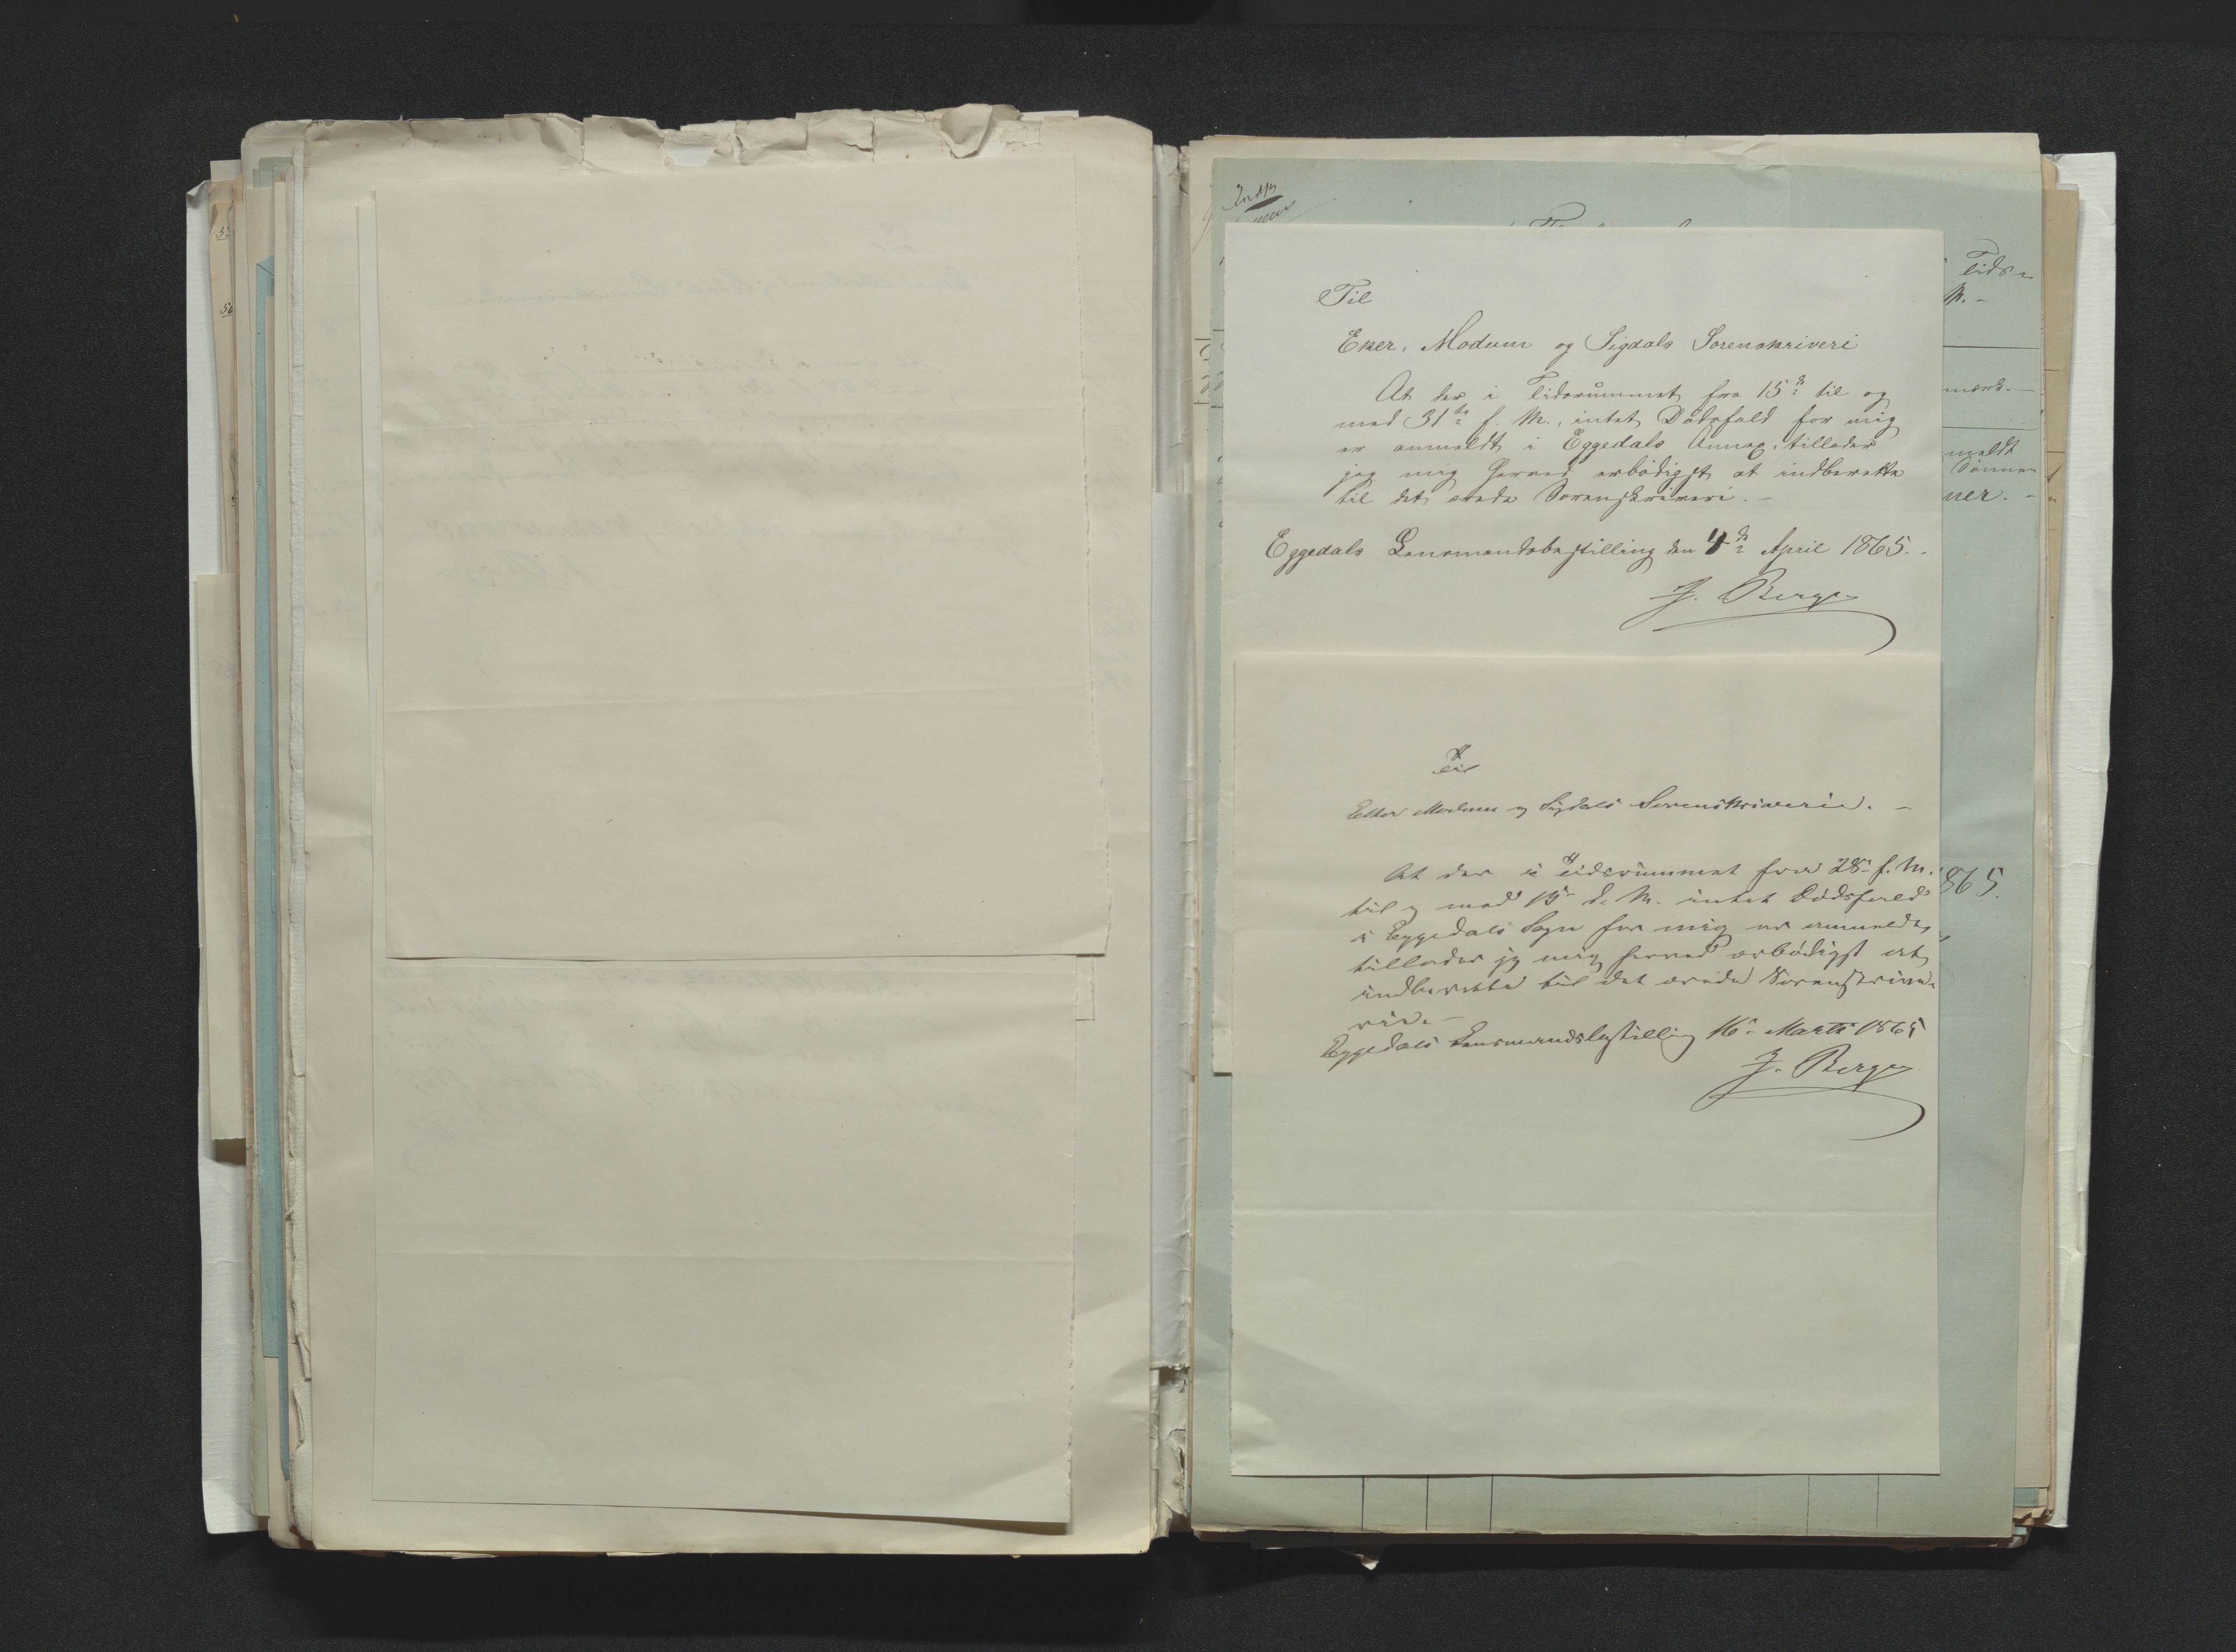 Til
Eker, Modum og Sigdals Sorenskriveri
At der i Tidsrummet fra 15de til og
med 31te f. M., intet Dødsfald for mig
er anmeldt i Eggedals Annex, tillader
jeg mig herved ærbødigst at indberette
til det ærede Sorenskriveri.-
Eggedals Lensmandsbestilling den 4de April 1865.
J. Berge
Til
Eker Modum og Sigdals Sorenskriverie. -
At der i Tidsrummet fra 28. f. M.
til og med 15. d. M. intet Dødsfald
i Eggedals Sogn for mig er anmeldt,
tillader jeg mig herved ærbødigst at
indberette til det ærede Sorenskrive-
rie.-
Eggedals Lensmandsbestilling 16. Marts 1865
J. Berge
Tids-
M.-
meldt
ner. -
865.